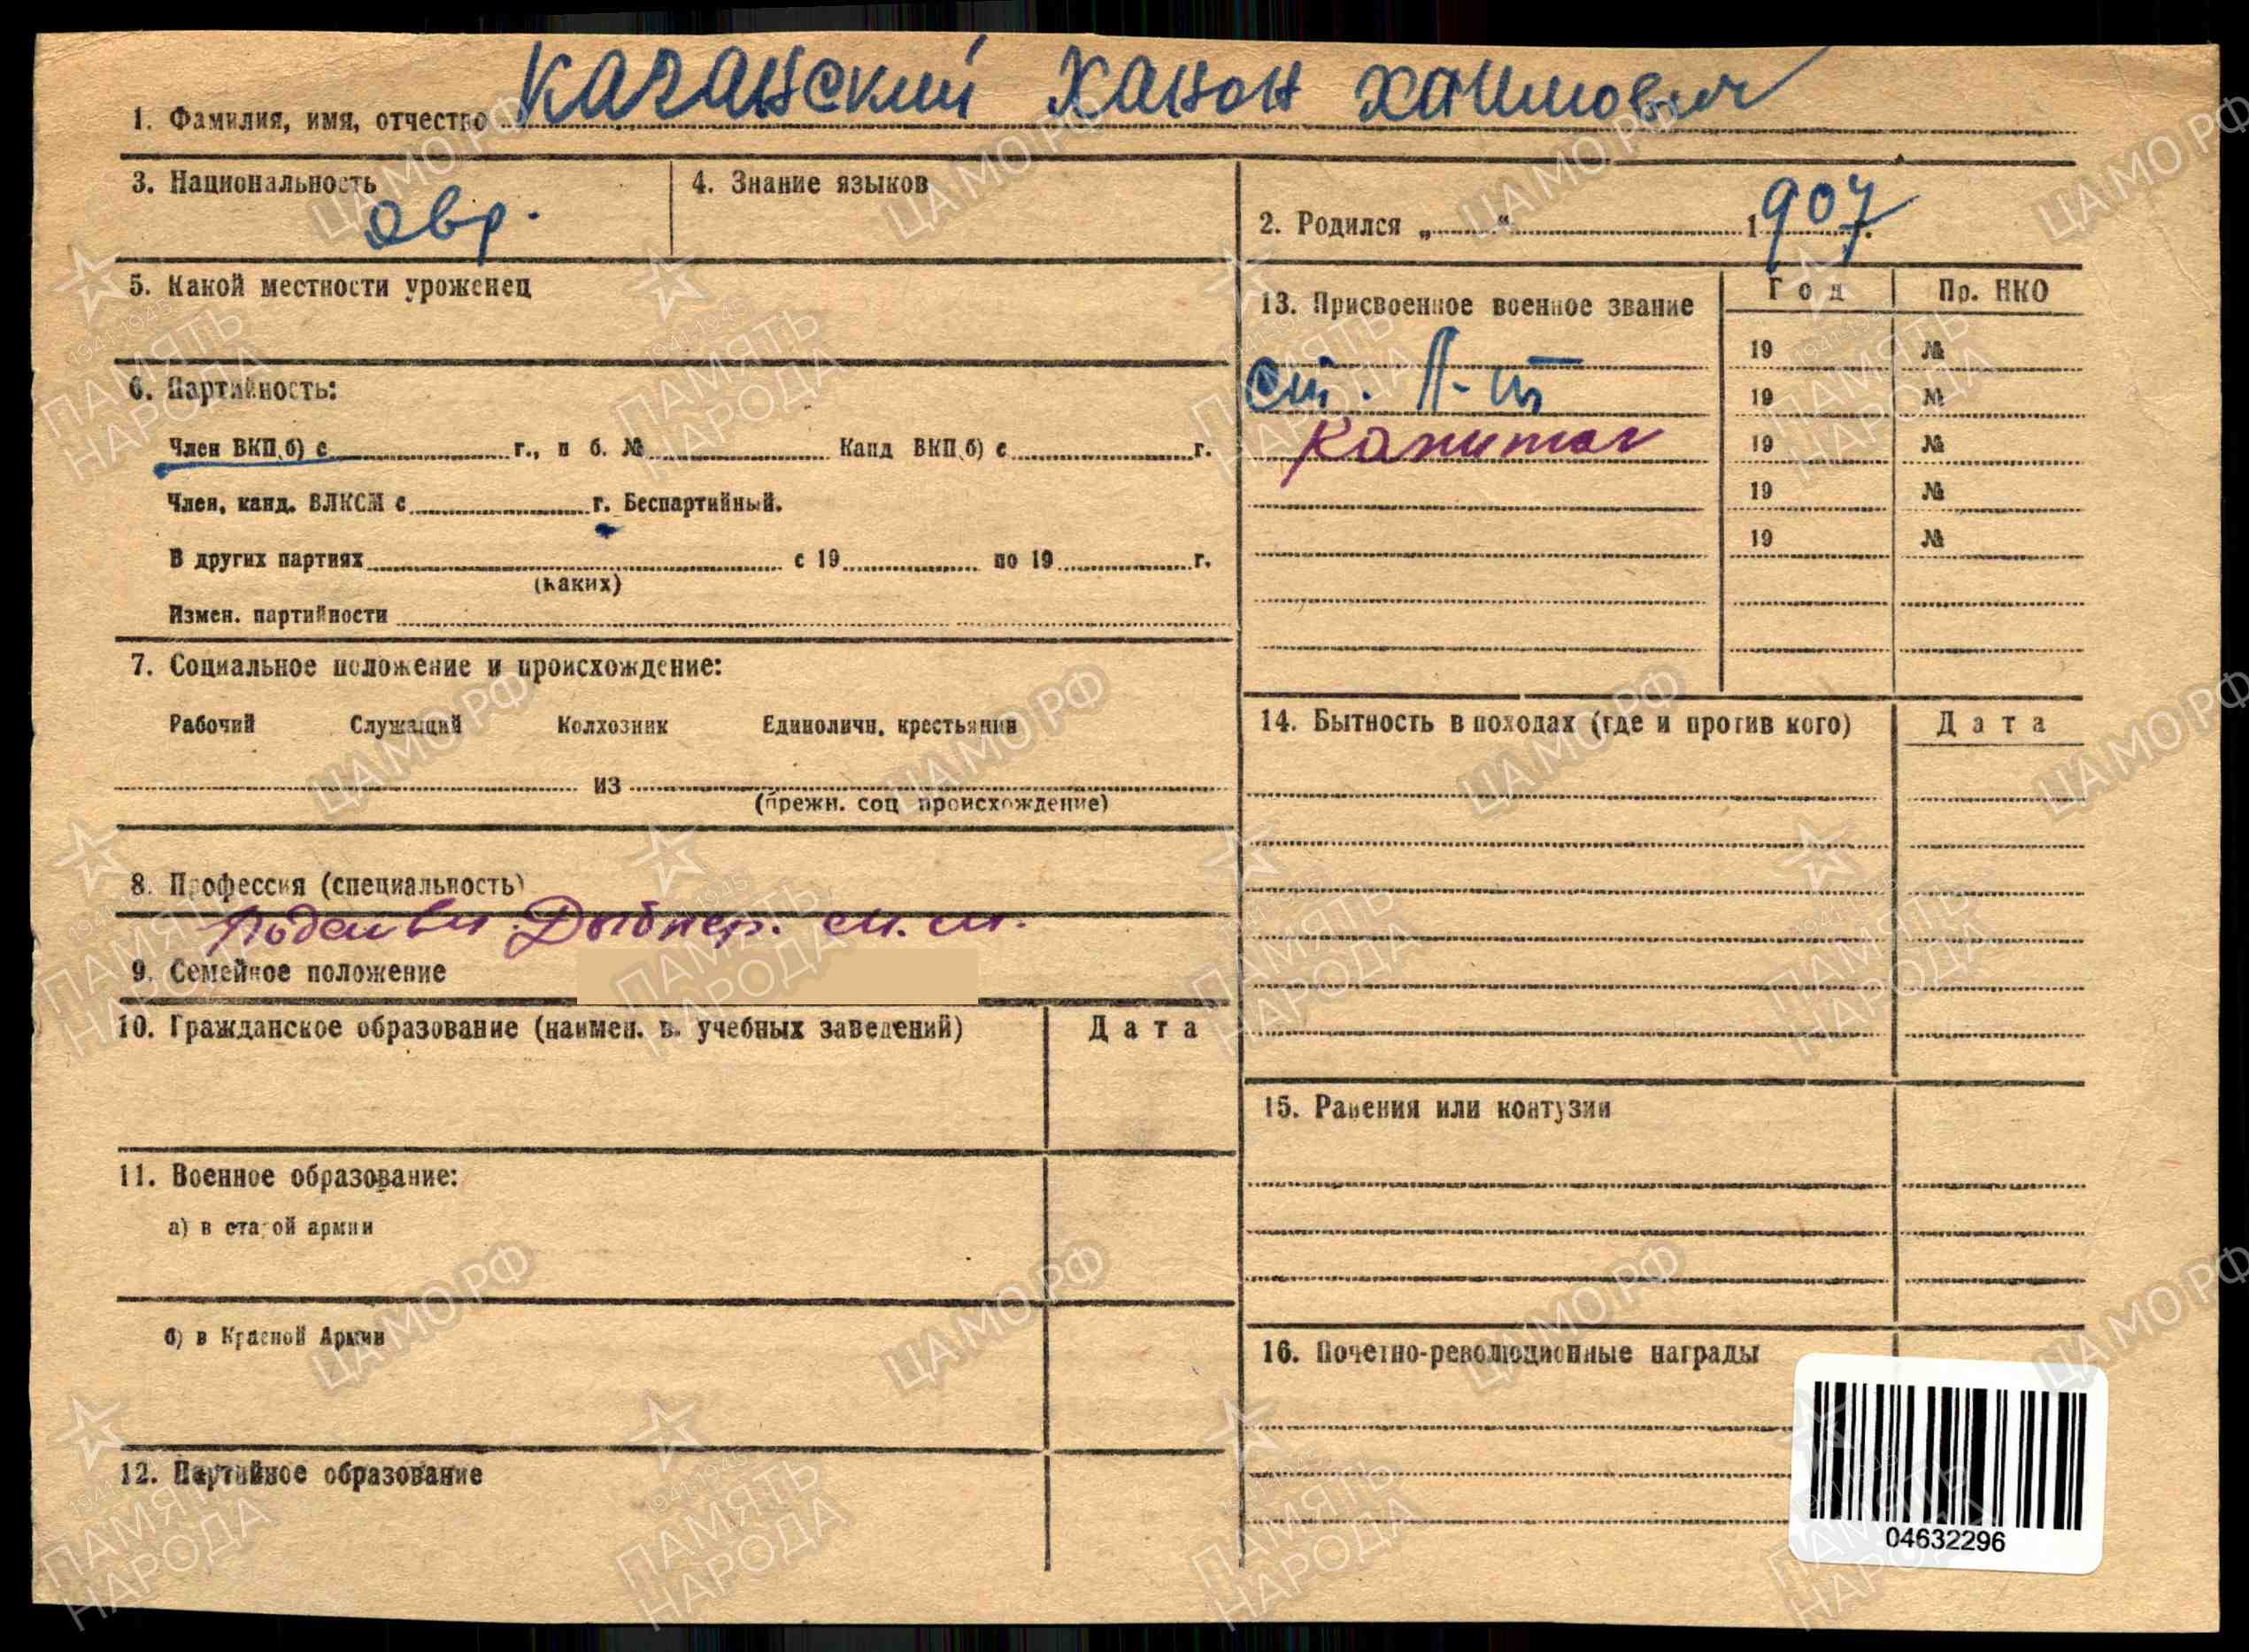 1. Фамилия, имя, отчество Казанский Ханон Хаимович
3. Национальность евр.
4. Знание языков
2. Родился „ “ 1907 г.
5. Какой местности уроженец
6. Партийность:
Член ВКП(б) с г., п б. № Канд ВКП(б) с г.
Член, канд. ВЛКСМ с г. Беспартийный.
В других партиях с 19 по 19 г.
(каких)
Измен. партийности
7. Социальное положение и происхождение:
Рабочий Служащий Колхозник Единоличн. крестьянин
из
(прежн. соц происхождение)
8. Профессия (специальность)
9. Семейное положение
10. Гражданское образование (наимен. в. учебных заведений) Дата
11. Военное образование:
а) в старой армии
б) в Красной Армии
12. Партийное образование
13. Присвоенное военное звание Год Пр. НКО
19 №
ст. л-т 19 №
Капитан 19 №
19 №
19 №
14. Бытность в походах (где и против кого) Дата
15. Ранения или контузии
16. Почетно-революционные награды
04632296
ЦАМО.РФ
1941-1945
ПАМЯТЬ
НАРОДА